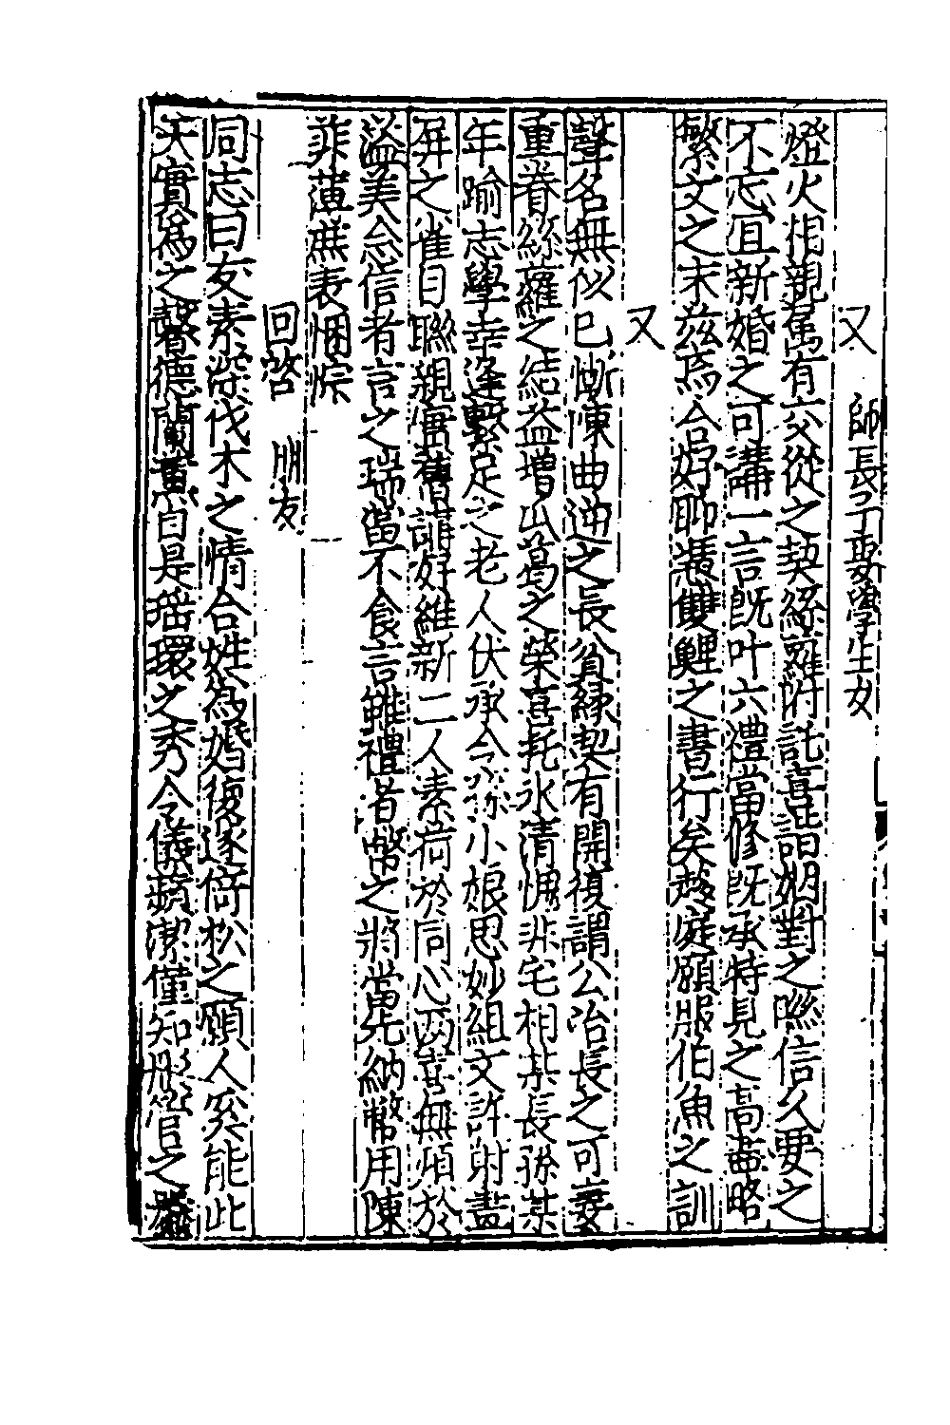 又 師長子娶學生女
燈火相親舊有交從之契絲蘿附託喜諧姻對之聮信久要之
不忘宜新婚之可講一言旣叶六禮當修旣承特見之高盡略
繁文之末茲焉合好聊憑雙鯉之書行矣趍庭願服伯魚之訓
又
聲名無似已慚陳曲逆之長貧緣契有開復謂公冶長之可妻
重眷絲蘿之結益增瓜葛之榮喜托氷清愧非宅相某長孫某
年踰志學幸逢繫足之老人伏承令孫小娘思妙組文許射畫
屏之雀目聮親舊舊講好維新二人素荷於同心兩喜無煩於
溢美念信者言之瑞當不食言雖禮者幣之將當先納幣用陳
菲薄蔗表悃悰
回啓 朋友
同志曰友素深伐木之情合姓爲婚復遂倚松之願人奚能此
天實爲之馨德蘭薰自是瑤環之秀令儀蘋潔僅知彤管之